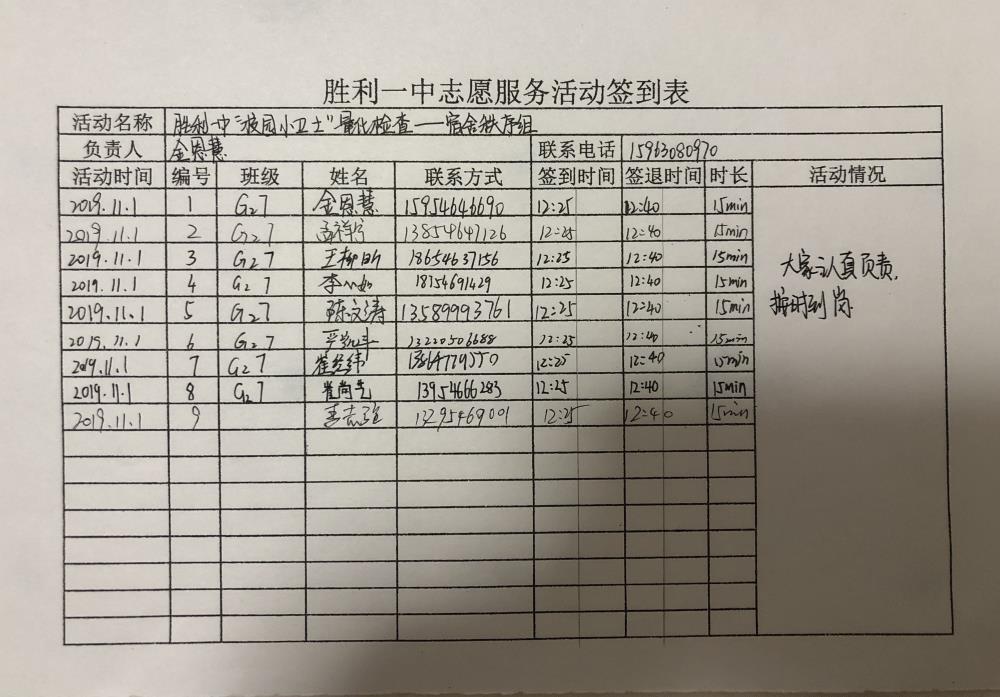 胜利一中志愿服务活动签到表
活动名称 胜利一中"校园小卫士"量化检查——宿舍秩序组
负责人 金恩慧 联系电话 15963080970
活动时间 编号 班级 姓名 联系方式 签到时间 签退时间 时长 活动情况
2019.11.1 1 G27 金恩慧 15954646690 12:25 12:40 15min
2019.11.1 2 G27 孟祥宁 13854647126 12:25 12:40 15min
2019.11.1 3 G27 18654637156 12:25 12:40 15min
2019.11.1 4 G27 18154691429 12:25 12:40 15min
2019.11.1 5 G27 陈文涛 13589993761 12:25 12:40 15min
2019.11.1 6 G27 13220506688 12:25 12:40 15min
2019.11.1 7 G27 崔经纬 12:25 12:40 15min
2019.11.1 8 G27 崔尚先 13954666283 12:25 12:40 15min
2019.11.1 9 李志强 13295469001 12:25 12:40 15min
大家认真负责,
按时到岗